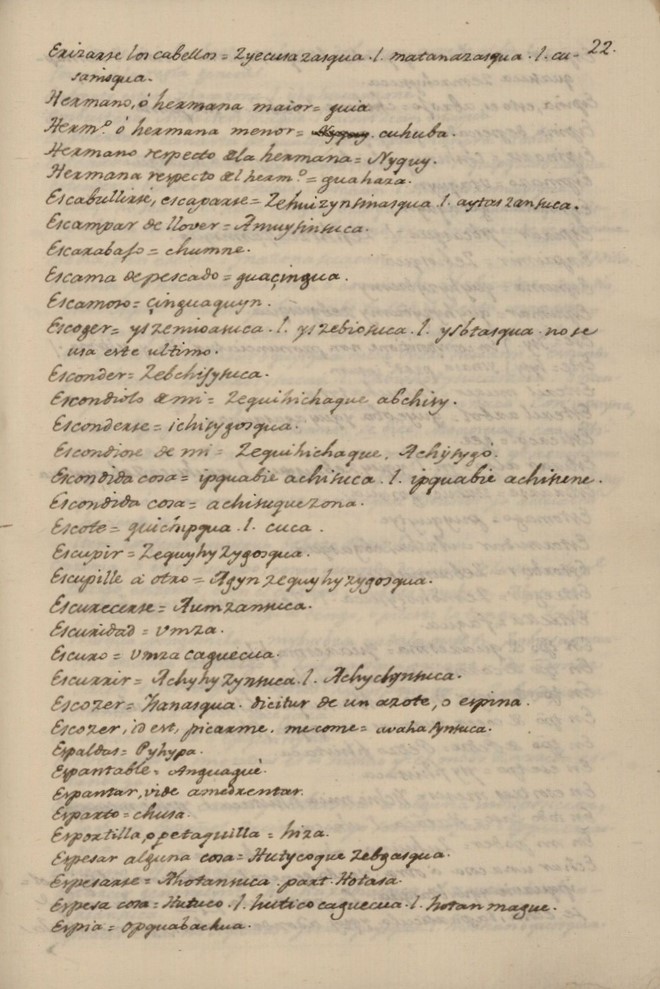 22.
Erizarse los cabellos = Zyecusazasqua . l. matanazasqua . l. cu-
samisqua.
Hermano, ó hermana maior = guia
Herm.º ó hermana menor = cuhuba.
Hermano respecto de la hermana = Nyquy.
Hermana respecto del herm.º = guahaza.
Escabullirse, escaparse = Zehuizynsinasqua . l. aytas zansuca.
Escampar de llover = Amuysinsuca.
Escarabajo = chumne.
Escama de pescado = guaçingua.
Escamoso = çinguaguyn.
Escoger = ys zemioasuca . l. ys zebiosuca . l. ysbtasqua no se
usa este ultimo.
Esconder = Zebchisysuca.
Escondiolo de mi = Zequihichaque abchisy.
Esconderse = ichisygosqua.
Escondiose de mi = Zequihichaque, Achysygó.
Escondida cosa = ipquabie achisuca . l. ipquabie achisene.
Escondida cosa = achisuquezona.
Escote = quichpqua . l. cuca.
Escupir = Zequyhyzygosqua.
Escupille á otro = Agyn zequyhyzygosqua.
Escurecerse = Aumzansuca.
Escuridad = vmza.
Escuro = vmza caguecua.
Escurrir = Achyhyzynsuca . l. Achychynsuca.
Escozer = Hanasqua. dicitur de un azote, o espina.
Escozer, id est, picarme, me come = avahasynsuca.
Espaldas = Pyhypa.
Espantable = Anguaguè.
Espantar, vide amedrentar.
Esparto = chusa.
Esportilla, o petaquilla = hiza.
Espesar alguna cosa = Hutycoque zebgasqua.
Espesarse = Ahotansuca. part. Hotasa.
Espesa cosa = Hutuco . l. hutico caguecua . l. hotan mague.
Espia = opquabachua.